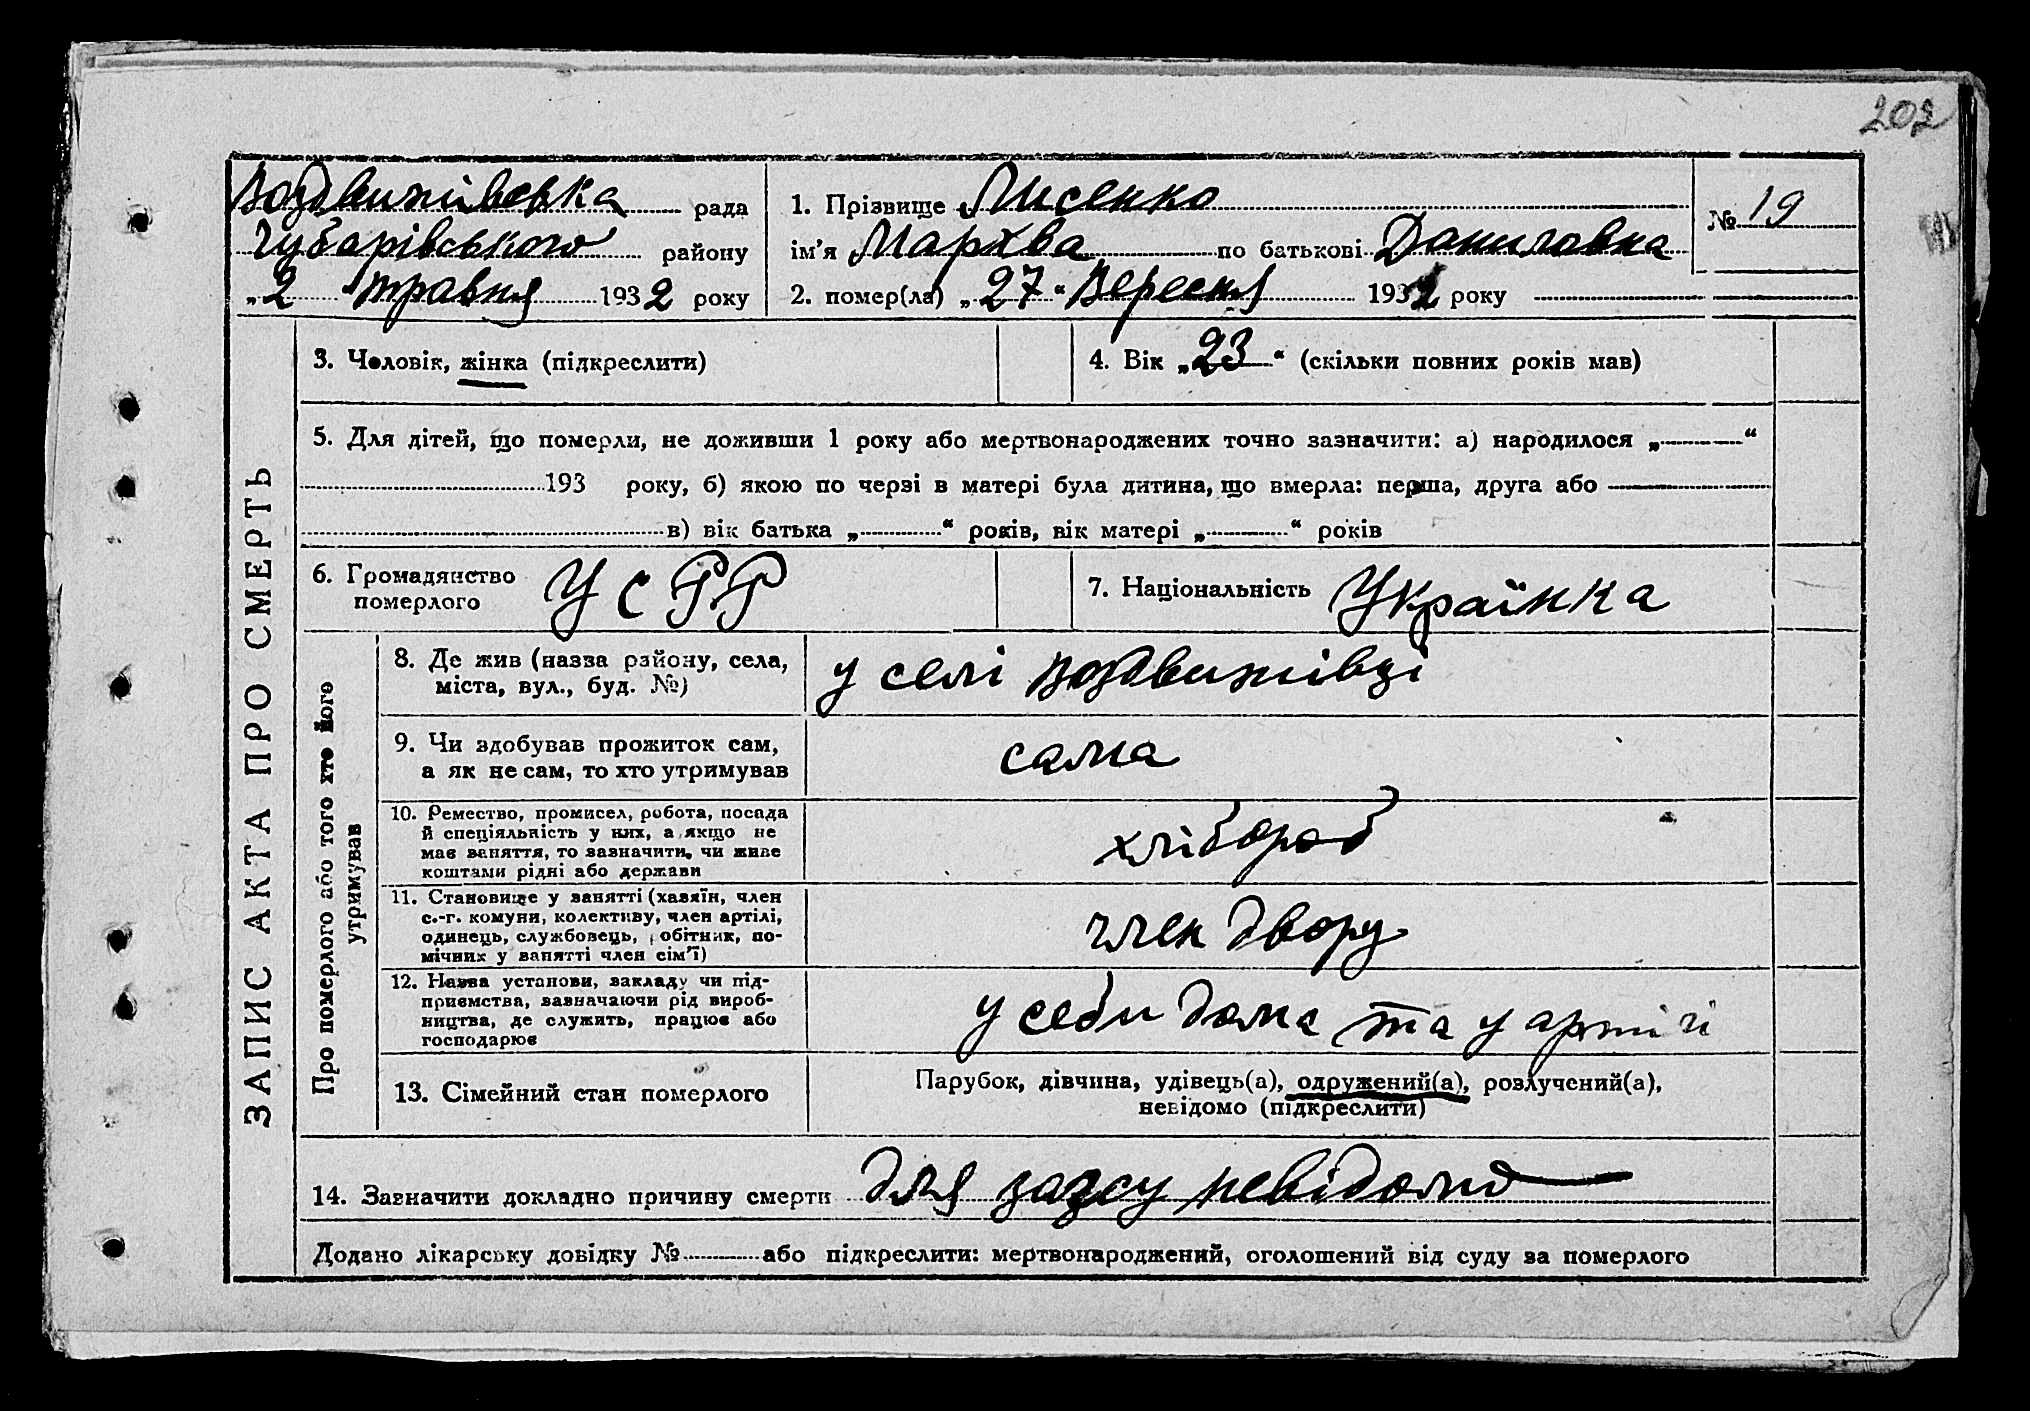 202
Воздвижівська рада
Губарівського району
„2 " травня 1932 року
1. Прізвище Лисенко
ім’я Мархва по батькові Даниловна
2. помер(ла) „27“ Вересня 1932 року
№ 19
ЗАПИС АКТА ПРО СМЕРТЬ
3. Чоловік, жінка (підкреслити)
4. Вік „23“ (скільки повних років мав)
5. Для дітей, що померли, не доживши 1 року або мертвонароджених точно зазначити: а) народилося „ “
193 року, б) якою по черзі в матері була дитина, що вмерла: перша, друга або
в) вік батька „ “ років, вік матері „ “ років
6. Громадянство
померлого
УСРР
7. Національність Українка
Про померлого або того хто його
утримував
8. Де жив (назва району, села,
міста, вул., буд. №)
у селі Воздвижівці
9. Чи здобував прожиток сам,
а як не сам, то хто утримував
сама
10. Ремество, промисел, робота, посада
й спеціяльність у них, а якщо не
має заняття, то зазначити, чи живе
коштами рідні або держави
хлібороб
11. Становище у занятті (хазяїн, член
с.-г. комуни, колективу, член артілі,
одинець, службовець, робітник, по-
мічних у занятті член сім’ї)
член двору
12. Назва установи, закладу чи під-
приємства, зазначаючи рід вироб-
ництва, де служить, працює або
господарює
у себи дома та у артілі
13. Сімейний стан померлого
Парубок, дівчина, удівець(а), одружений(а), розлучений(а),
невідомо (підкреслити)
14. Зазначити докладно причину смерти для загсу невідомо
Додано лікарську довідку № або підкреслити: мертвонароджений, оголошений від суду за померлого